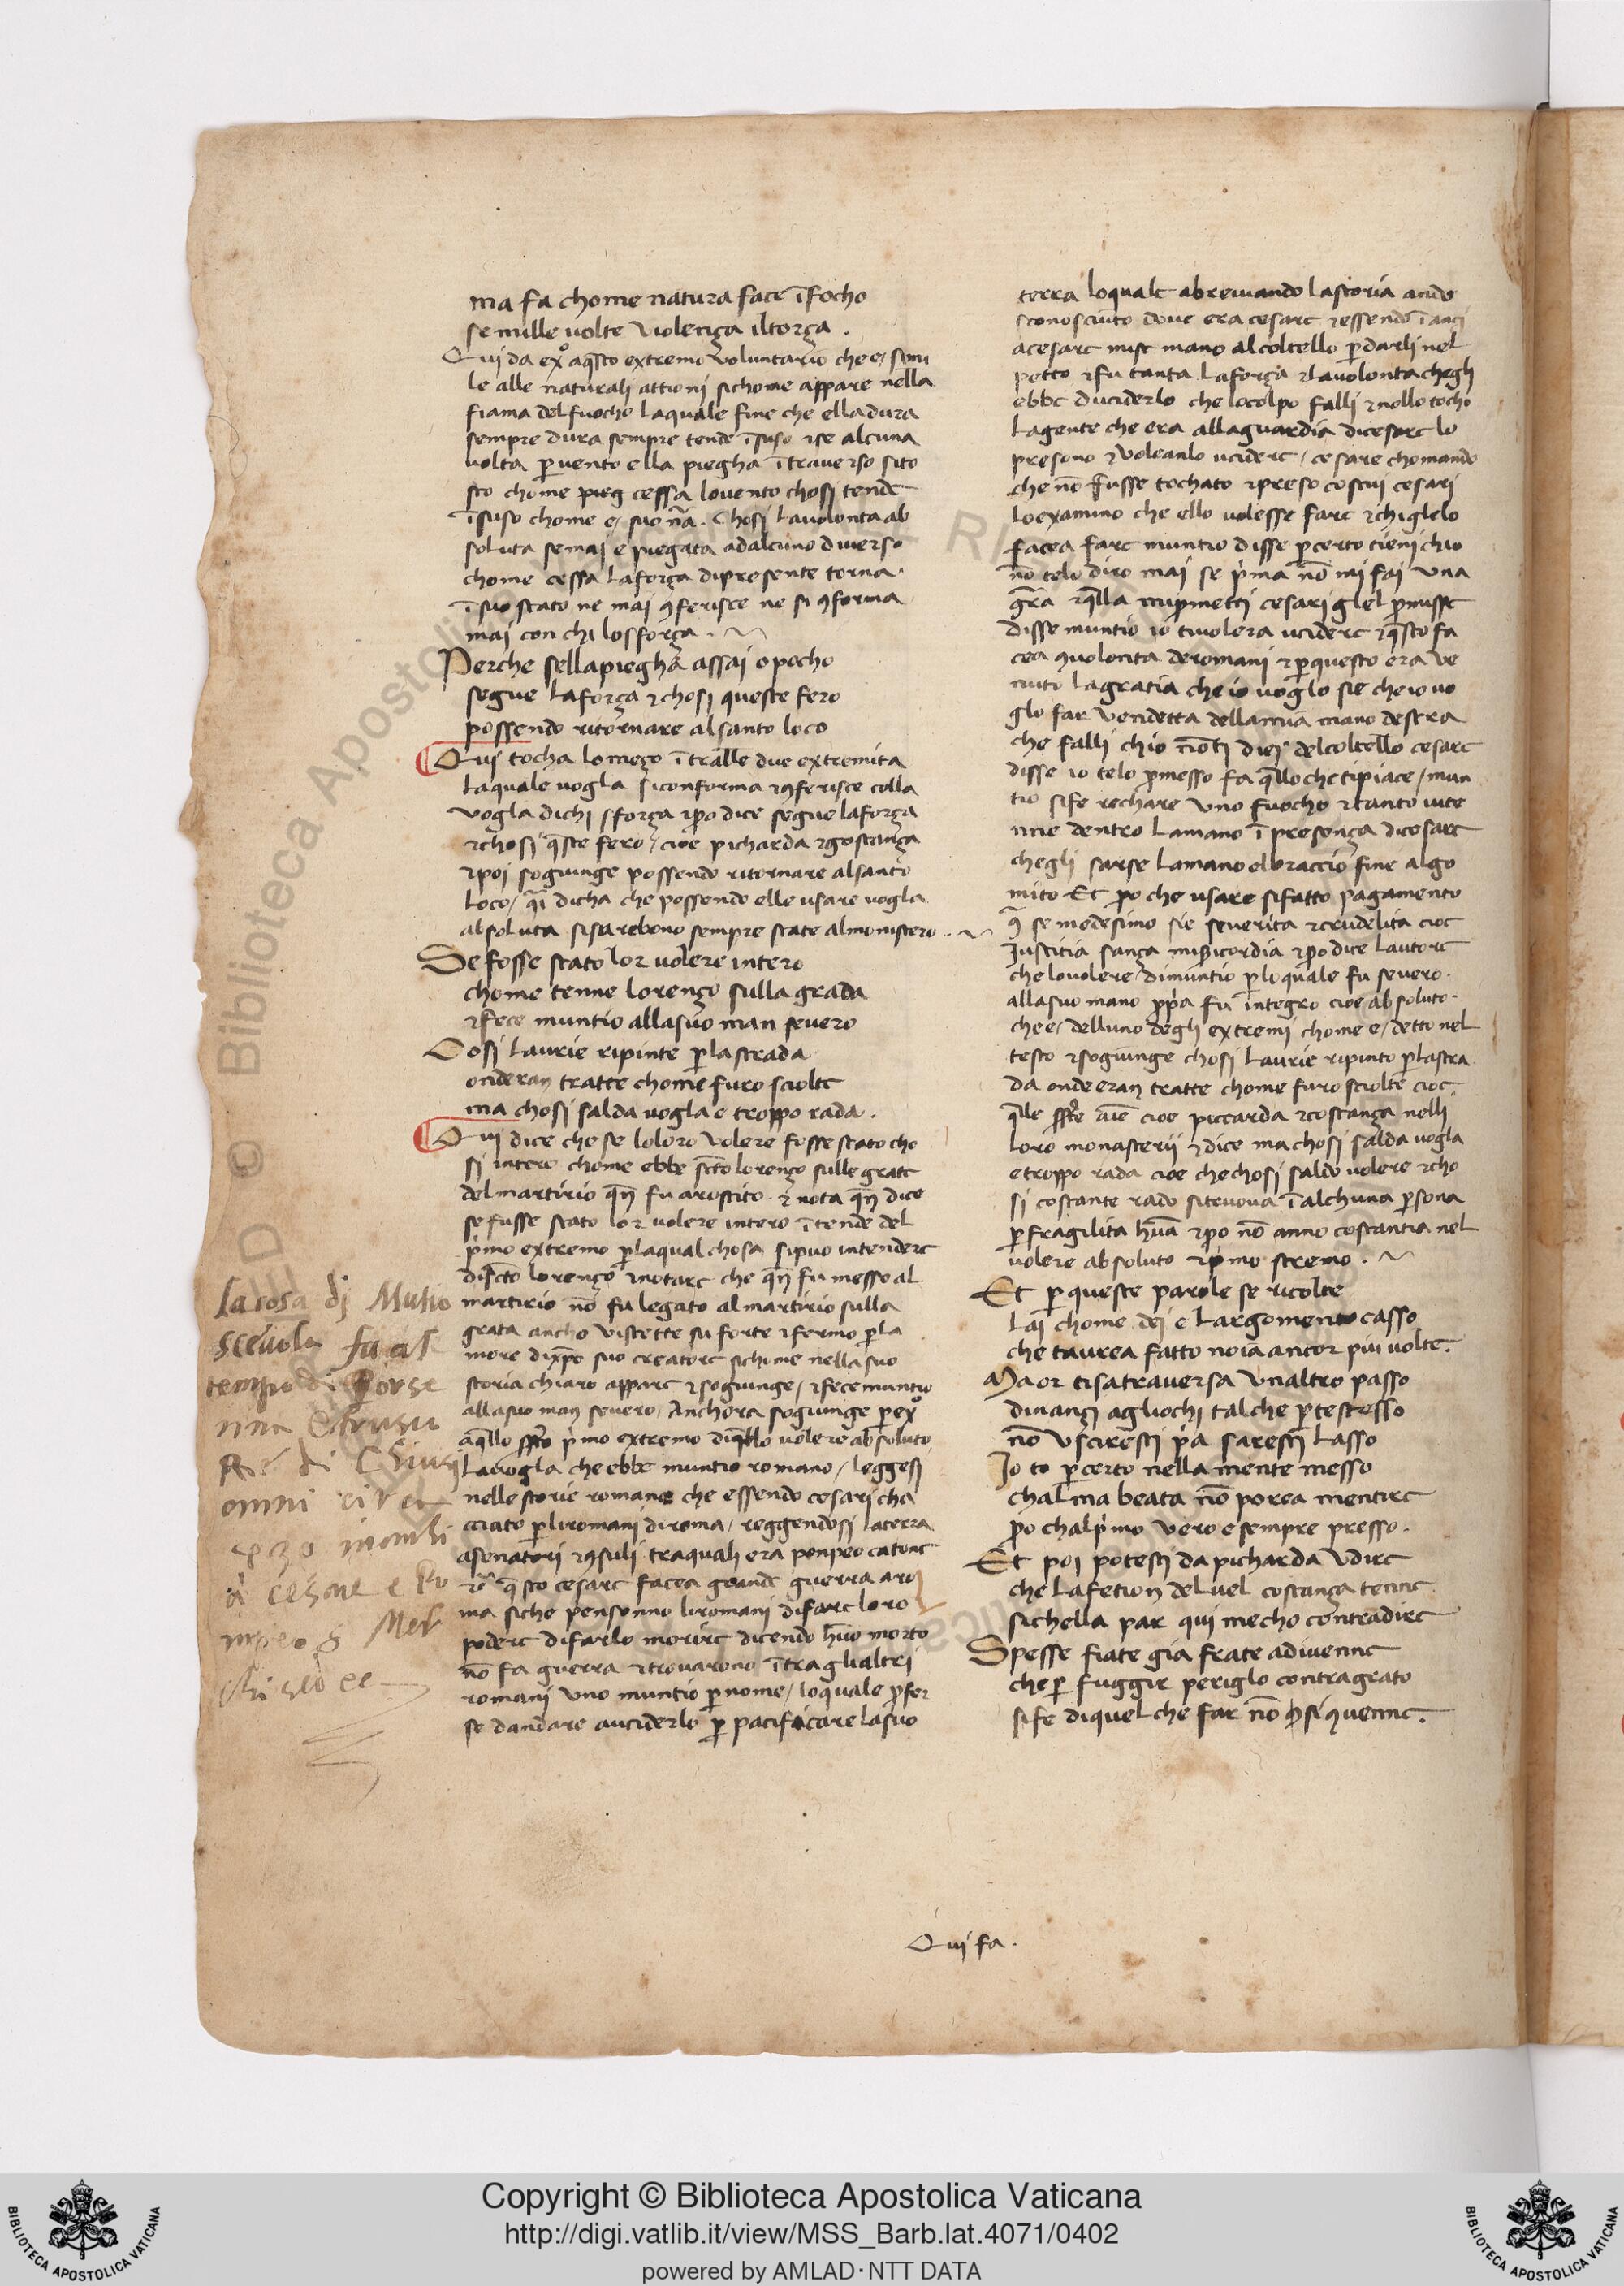 ma fa chome natura face ī focho
se mille volte violenza il torza .
Qui da exº a q̄sto extremo voluntario che e / simi
le alle naturali attioni sichome appare nella
fiama del fuocho laquale fine che ella dura
sempre dura sempre tende ī suso ⁊ se alcuna
volta p̱ vento ella piegha ī traverso sito
sto chome cessa lo vento chosi tende
ī suso chome e / suo nã . Chosi la volonta ab
soluta se mai e piegata ad alcuno diverso
chome cessa la força di presente torna
ī suo stato ne mai ꝯferisce ne si ꝯforma
mai con chi lo sforça .
Perche sella piegha assai o pocho
segue la força ⁊ chosi queste fero
possendo ritornare al santo loco
Qui tocha lo mezo ī tralle due extremita
la quale vogla si conforma ⁊ ꝯferisce colla
vogla di chi sforça ⁊ p̱o dice segue la força
⁊ chosi q̄ste fero / cioe picharda ⁊ gostança
⁊ poi sogiunge possendo ritornare al santo
loco / q̄i dicha che possendo elle usare vogla
absoluta si sarebono sempre state al monistero .
Se fosse stato lor volere intero
chome tenne lorenzo sulla grada
⁊ fece muntio alla suo man severo
Cosi laurie ripinte p̱ la strada
onderan tratte chome furo sciolte
ma chosi salda vogla e troppo rada .
Qui dice che se lo loro volere fosse stato cho
si intero chome ebbe sc̄to lorenzo sulle grate
del martirio qñ fu arostito . ⁊ nota qñ dice
se fusse stato lor volere intero ī tende del
p̍mo extremo p̱ la qual chosa si puo intendere
di sc̄to lorenzo ⁊ notare che qñ fu messo al
martirio nō fu legato al martirio sulla
grata ancho vi stette su forte ⁊ fermo p̱ la
more dix̄po suo creatore sichome nella suo
storia chiaro appare ⁊ sogiunge / ⁊ fece muntio
alla suo man severo / Anchora sogiunge p̱ exº
a q̄llo p̍mo extremo di q̄llo volere absoluto
la vogla che ebbe muntio romano / leggesi
nelle storie romane che essendo cesari cha
cciato p̱ li romani di roma / reggendosi la terra
a senatori ⁊ ꝯsuli tra quali era pompeo catone
⁊c̄ q̄sto cesare facea grande guerra a ro
ma siche pensonno li romani di fare loro
podere di farlo morire dicendo huō morto
nō fa guerra ⁊ trovarono ī tra gli altri
romani uno muntio p̱ nome / lo quale p̱fer
se dandare auciderlo p̱ pacificare la suo
la cosa di Mutio
scevola fu al
tempo di Porse
nna Etrusu
Re di Chiusi
omni
à cesare e Po
mpeo
terra lo quale abreviando la storia ando
sconosciuto dove era cesare ⁊ essendo ī anzi
a cesare mise mano al coltello p̱ darli nel
petto ⁊ fu tanta la força ⁊ la volonta chegli
ebbe duciderlo che lo colpo falli ⁊ nollo tocho
la gente che era alla guardia di cesare lo
presono ⁊ voleanlo ucidere / cesare chomando
che nō fusse tochato ⁊ preso costui cesari
lo examino che ello volesse fare ⁊ chi glelo
facea fare muntio disse p̱ certo tieni chio
nō telo diro mai se p̍ma nō mi fai una
gr̄a ⁊ q̄lla mi p̍metti cesari glel p̱misse
disse muntio io ti volera ucidere ⁊ q̄sto fa
cea ꝯ volonta de romani ⁊ p̱ questo era ve
nuto la gratia che io voglo sie che io vo
glo far vendetta della mia mano destra
che falli chio nōti diei del coltello cesare
disse io telo p̱messo fa q̄llo che ti piace / mun
tio si fe rechare uno fuocho ⁊ tanto vite
nne dentro la mano ī presença di cesare
chegli sarse la mano el braccio fine al go
mito Et p̱o che usare si fatto pagamento
ꝯ se medesimo sie severita ⁊ crudelita cioe
justitia sança misericordia ⁊ p̱o dice lautore
che lo volere di muntio p̱ lo quale fu severo .
alla suo mano p̱p̍a fu integro cioe absoluto .
che e / delluno degli extremi chome e / detto nel
testo ⁊ sogiunge chosi laurie ripinto p̱ la stra
da onde eran tratte chome furo sciolte cioe
q̄lle aīe cioe piccarda ⁊ costança nelli
loro monasterii ⁊ dice ma chosi salda vogla
e troppo rada cioe che chosi saldo volere ⁊ cho
si costante rado si truova ī alchuna p̱sona
p̱ fragilita hūa ⁊ p̱o nō anno costantia nel
volere absoluto ⁊ p̍mo stremo .
Et p̱ queste parole se ricolte
lai chome dei e largomento casso
che taurea fatto noia ancor piu volte .
Ma or ti satraversa unaltro passo
dinanzi agliochi tal che p̱ te stesso
nō usciresti p̍a saresti lasso
Io to p̱ certo nella mente messo
chalma beata nō porea mentire
p̱o chal p̍mo vero e sempre presso .
Et poi potesti da picharda udire
che lafetion del vel costança tenne
sichella par qui mecho contradire
Spesse fiate gia frate adivenne
che p̱ fuggir periglo contra grato
si fe di quel che far nō si ꝯvenne .
Qui fa .
Copyright © Biblioteca Apostolica Vaticana
http://digi.vatlib.it/view/MSS_Barb.lat.4071/0402
powered by AMLAD·NTT DATA
BIBLIOTECA APOSTOLICA VATICANA
BIBLIOTECA APOSTOLICA VATICANA